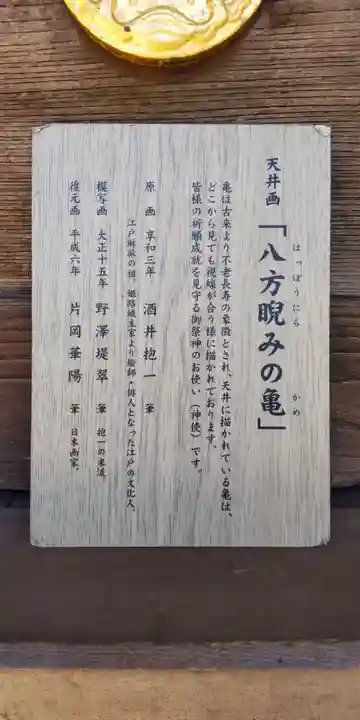 天井画「八方睨みの亀」
はっぽうにら かめ
亀は古来より不老長寿の象徴とされ、天井に描かれている亀は、
どこから見ても視線が合う様に描かれております。
皆様の祈願成就を見守る御祭神のお使い（神使）です。
原 画 享和三年 酒井抱一 筆
江戸琳派の祖 姫路城主家より絵師・俳人となった江戸の文化人。
模写画 大正十五年 野澤堤翠 筆 抱一の末流
復元画 平成六年 片岡華陽 筆 日本画家。